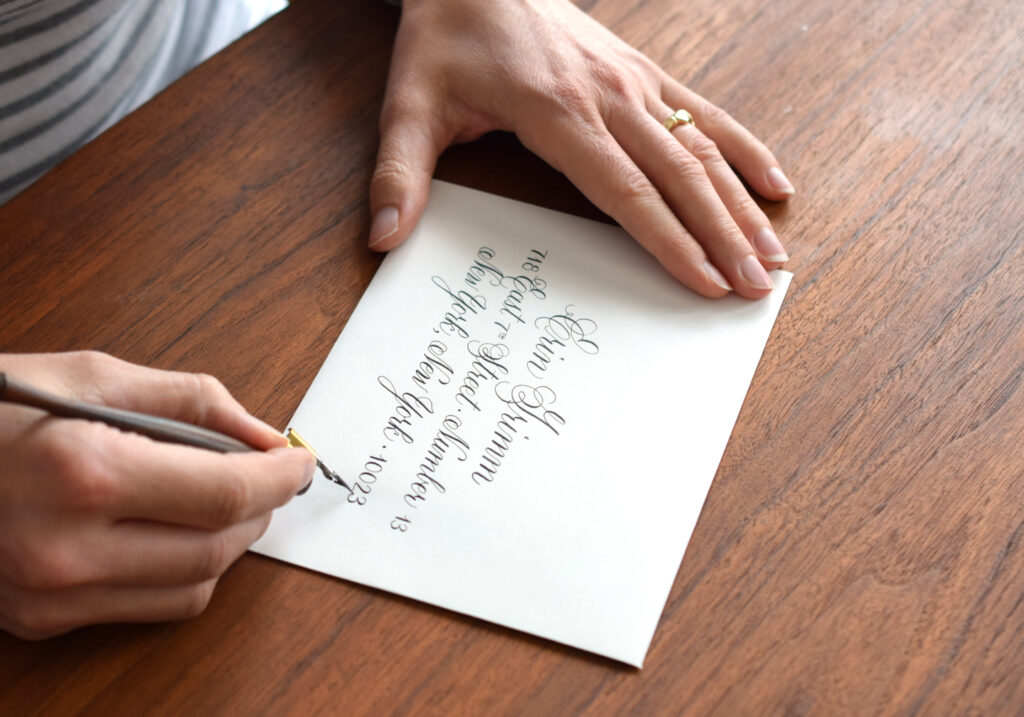 Erin Grimm
718 East 7TH Street · Number 13
New York, New York · 10023